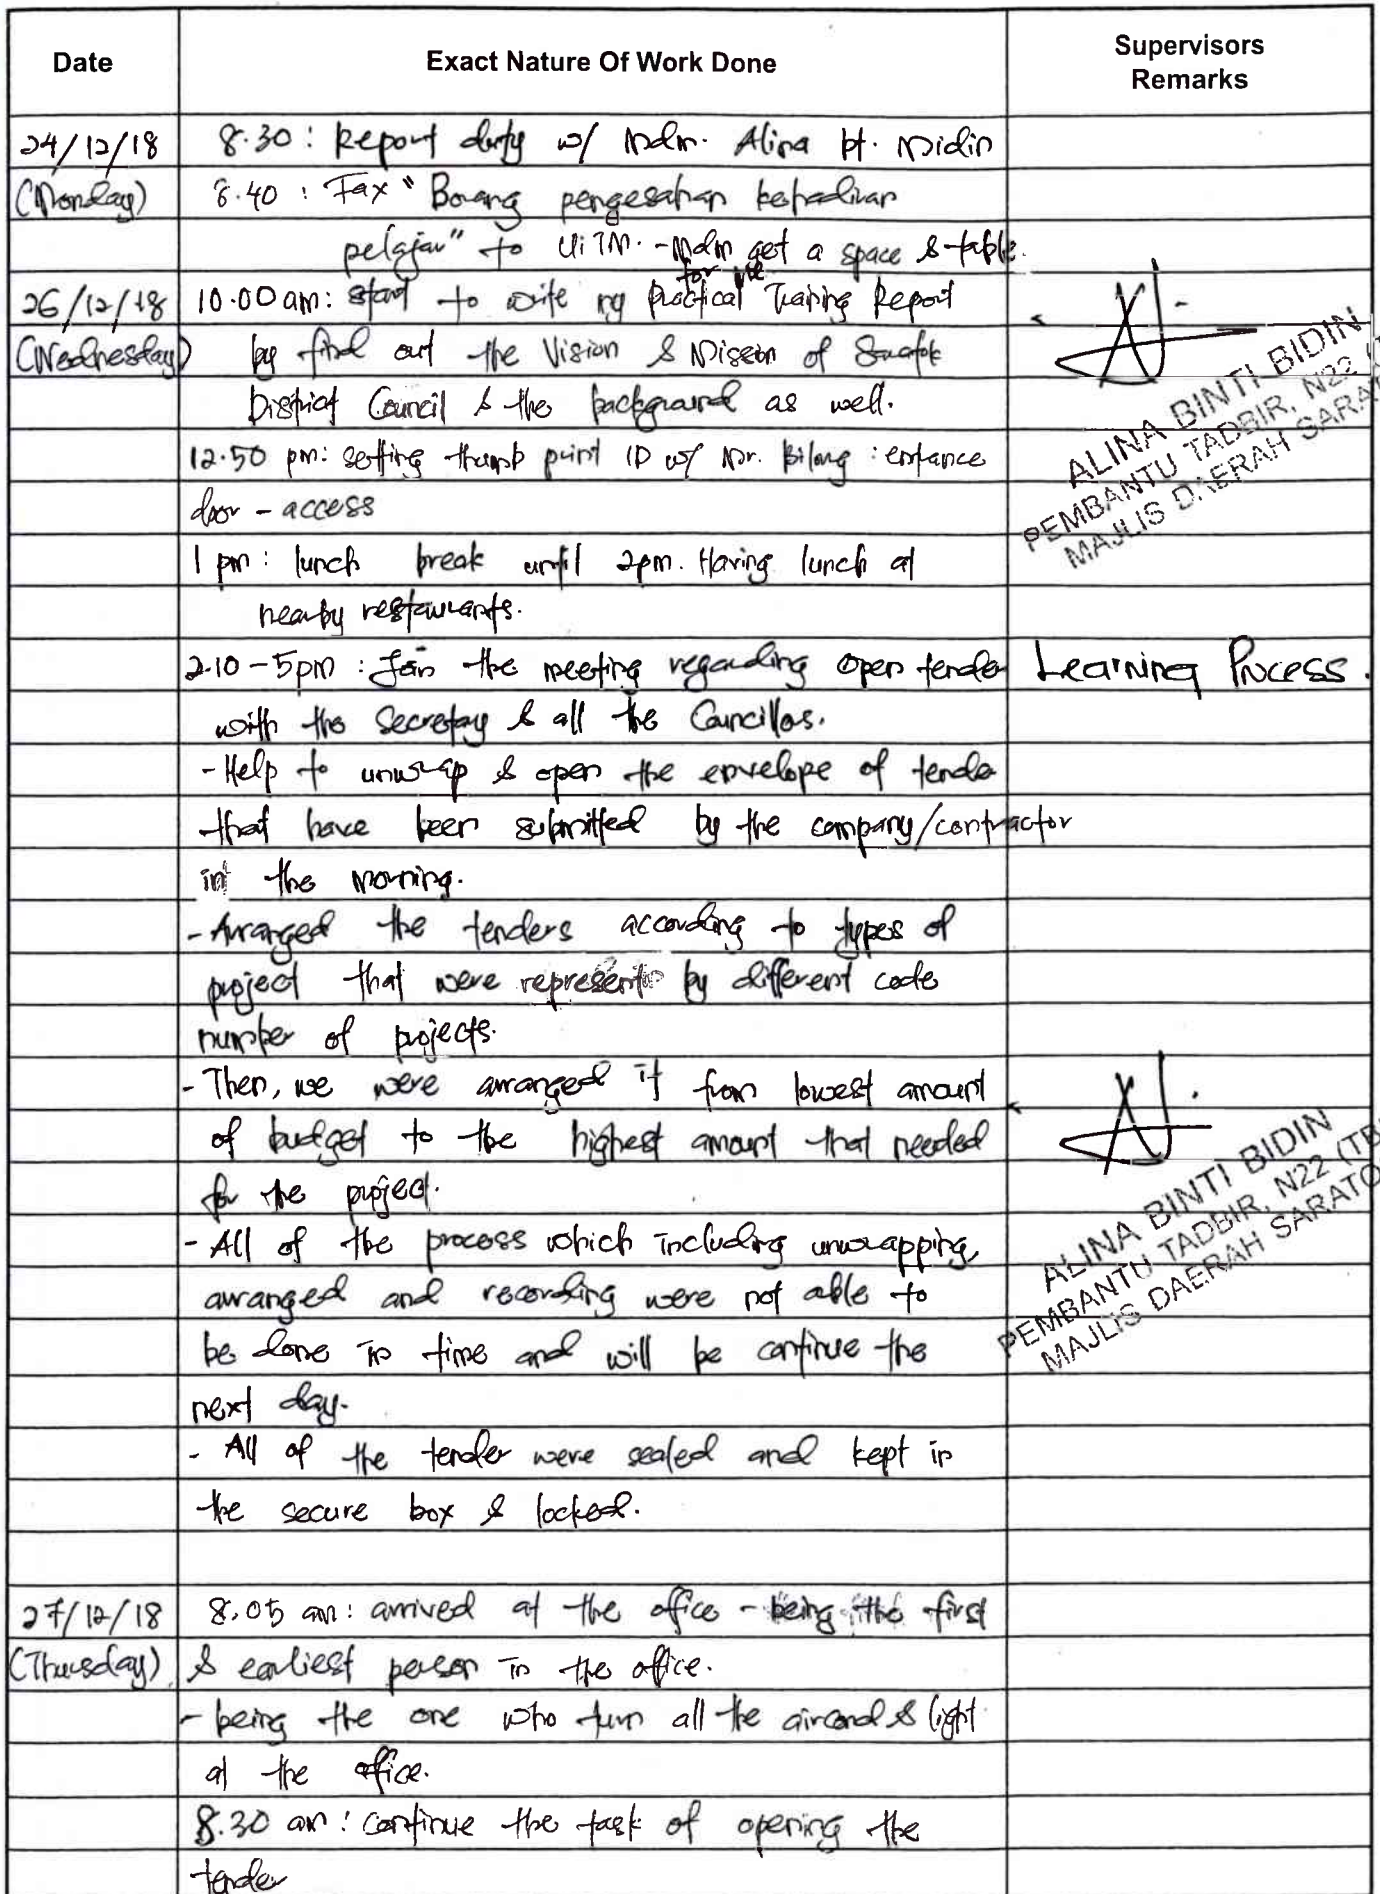 Date
Exact Nature Of Work Done
Supervisors
Remarks
24/12/18
8.30 : Report duty w/ Mdm. Alina bt. Bidin
(Monday)
8.40 : Fax "Borang pengesahan kehadiran
pelajar" to UiTM. - Mdm get a space & table
for me
26/12/18
10.00 am: start to write my Practical Training Report
(Wednesday)
by find out the Vision & Mission of Saratok
District Council & the background as well.
12.50 pm: setting thumb print ID w/ Mr. Bilong : entrance
door - access
1 pm : lunch break until 2pm. Having lunch at
nearby restaurants.
ALINA BINTI BIDIN
PEMBANTU TADBIR, N22
MAJLIS DAERAH SARA
2.10 - 5pm : Join the meeting regarding open tender
Learning Process.
with the Secretary & all the Councillors.
- Help to unwrap & open the envelope of tender
that have been submitted by the company/contractor
in the morning.
- Arranged the tenders according to types of
project that were represent by different code
number of projects.
- Then, we were arranged it from lowest amount
of budget to the highest amount that needed
for the project.
- All of the process which including unwrapping,
arranged and recording were not able to
be done in time and will be continue the
next day.
ALINA BINTI BIDIN
PEMBANTU TADBIR, N22 (TB
MAJLIS DAERAH SARATO
- All of the tender were sealed and kept in
the secure box & locked.
27/12/18
8.05 am : arrived at the office - being the first
(Thursday)
& earliest person in the office.
- being the one who turn all the aircond & light
at the office.
8.30 am : continue the task of opening the
tender